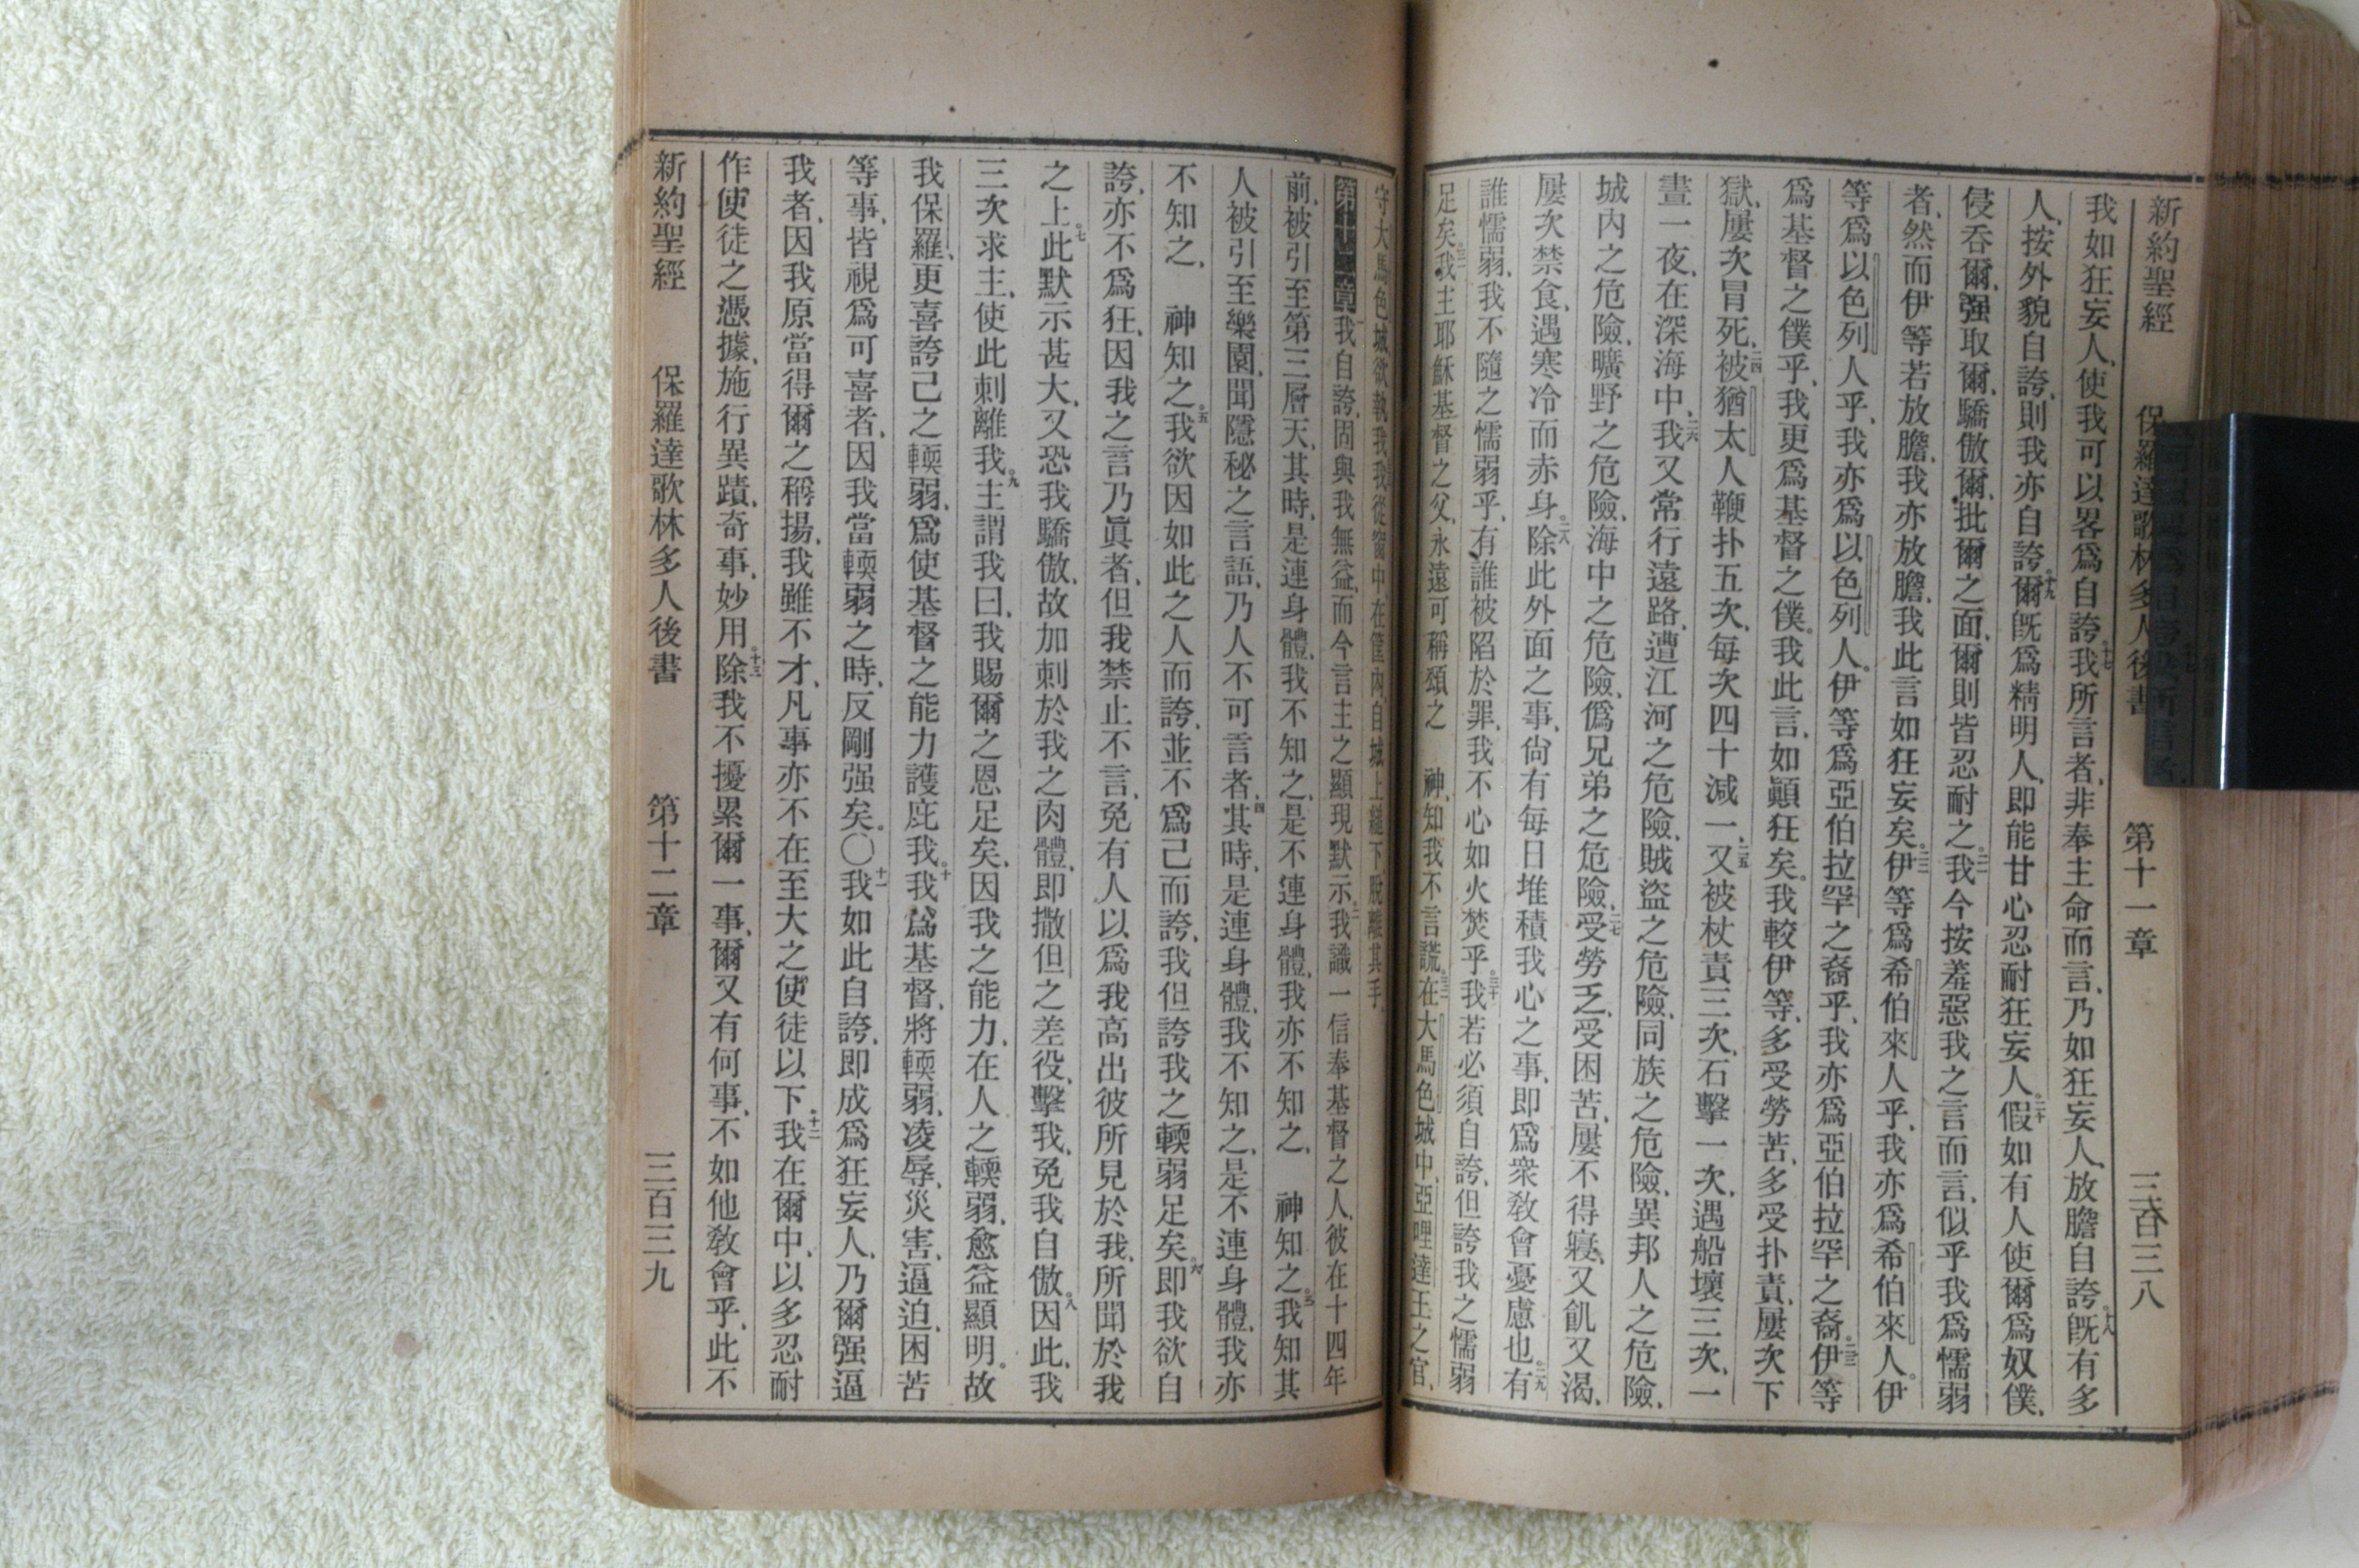 新約聖經 保羅達歌林多人後書 第十一章 三百三八
我如狂妄人、使我可以畧爲自誇。十七我所言者、非奉主命而言、乃如狂妄人、放膽自誇。十八旣有多
人、按外貌自誇、則我亦自誇。十九爾旣爲精明人、即能甘心忍耐狂妄人。二十假如有人使爾爲奴僕、
侵吞爾、强取爾、驕傲爾、批爾之面、爾則皆忍耐之。二一我今按羞惡我之言而言、似乎我爲懦弱
者、然而伊等若放膽、我亦放膽、我此言如狂妄矣。二二伊等爲希伯來人乎、我亦爲希伯來人。伊
等爲以色列人乎、我亦爲以色列人。伊等爲亞伯拉罕之裔乎、我亦爲亞伯拉罕之裔。二三伊等
爲基督之僕乎、我更爲基督之僕。我此言、如顚狂矣。我較伊等、多受勞苦、多受扑責、屢次下
獄、屢次冒死、二四被猶太人鞭扑五次、每次四十減一、二五又被杖責三次、石擊一次、遇船壞三次、一
晝一夜、在深海中、二六我又常行遠路、遭江河之危險、賊盜之危險、同族之危險、異邦人之危險、
城內之危險、曠野之危險、海中之危險、僞兄弟之危險、二七受勞乏、受困苦、屢不得寢、又飢又渴、
屢次禁食、遇寒冷而赤身。二八除此外面之事、尙有每日堆積我心之事、即爲衆敎會憂慮也。二九有
誰懦弱、我不隨之懦弱乎、有誰被陷於罪、我不心如火焚乎。三十我若必須自誇、但誇我之懦弱
足矣。三一我主耶穌基督之父、永遠可稱頌之 神、知我不言謊。三二在大馬色城中、亞哩達王之官、
守大馬色城、欲執我、我從窗中、在筐內、自城上縋下、脫離其手。
第十二章 一我自誇、固與我無益、而今言主之顯現默示。二我識一信奉基督之人、彼在十四年
前、被引至第三層天、其時、是連身體、我不知之、是不連身體、我亦不知之、 神知之。三我知其
人被引至樂園、聞隱秘之言語、乃人不可言者、四其時、是連身體、我不知之、是不連身體、我亦
不知之、 神知之。五我欲因如此之人而誇、並不爲己而誇、我但誇我之輭弱足矣。六即我欲自
誇、亦不爲狂、因我之言乃眞者、但我禁止不言、免有人以爲我高出彼所見於我、所聞於我
之上。七此默示甚大、又恐我驕傲、故加刺於我之肉體、即撒但之差役、擊我、免我自傲。八因此、我
三次求主、使此刺離我。九主謂我曰、我賜爾之恩足矣、因我之能力、在人之輭弱、愈益顯明。故
我保羅、更喜誇己之輭弱、爲使基督之能力護庇我。十我爲基督、將輭弱、凌辱、災害、逼迫、困苦
等事、皆視爲可喜者、因我當輭弱之時、反剛强矣。〇十一我如此自誇、即成爲狂妄人、乃爾强逼
我者、因我原當得爾之稱揚、我雖不才、凡事亦不在至大之使徒以下。十二我在爾中、以多忍耐
作使徒之憑據、施行異蹟、奇事、妙用。十三除我不擾累爾一事、爾又有何事、不如他敎會乎、此不
新約聖經 保羅達歌林多人後書 第十二章 三百三九